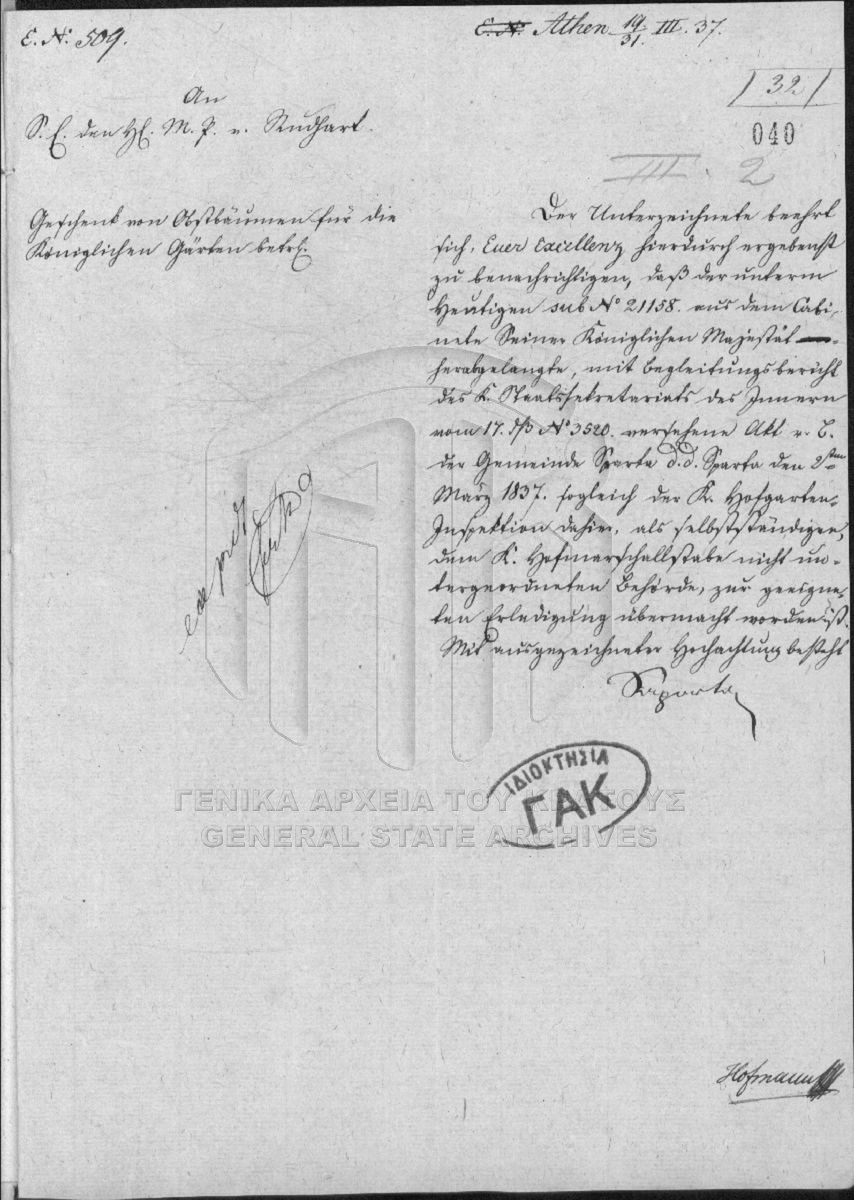 E. Nr. 509.
E. Nr. Athen 19/31. III. 37.
32
040
III. 2
An
S. E. den H. M. P. v. Rudhart.
Geschenk von Obstbäumen für die
Königlichen Gärten betr.
Der Unterzeichnete beehrt
sich, Euer Excellenz hierdurch ergebenst
zu benachrichtigen, daß der unterm
Heutigen sub No 21158. aus dem Cabi-
nete Seiner Königlichen Majestät
herabgelangte, mit Begleitungsbericht
des K. Staatssekretariats des Innern
vom 17. dß No 3520. versehene Akt
der Gemeinde Sparta d.d. Sparta den 2ten
März 1837. sogleich der K. Hofgarten-
Inspektion dahier, als selbstständigen,
dem K. Hofmarschallstabe nicht un-
tergeordneten Behörde, zur geeigne-
ten Erledigung übermacht worden ist.
Mit ausgezeichneter Hochachtung besteht
Saporta
ΙΔΙΟΚΤΗΣΙΑ
ΓΑΚ
ΓΕΝΙΚΑ ΑΡΧΕΙΑ ΤΟΥ ΚΡΑΤΟΥΣ
GENERAL STATE ARCHIVES
Hofmann